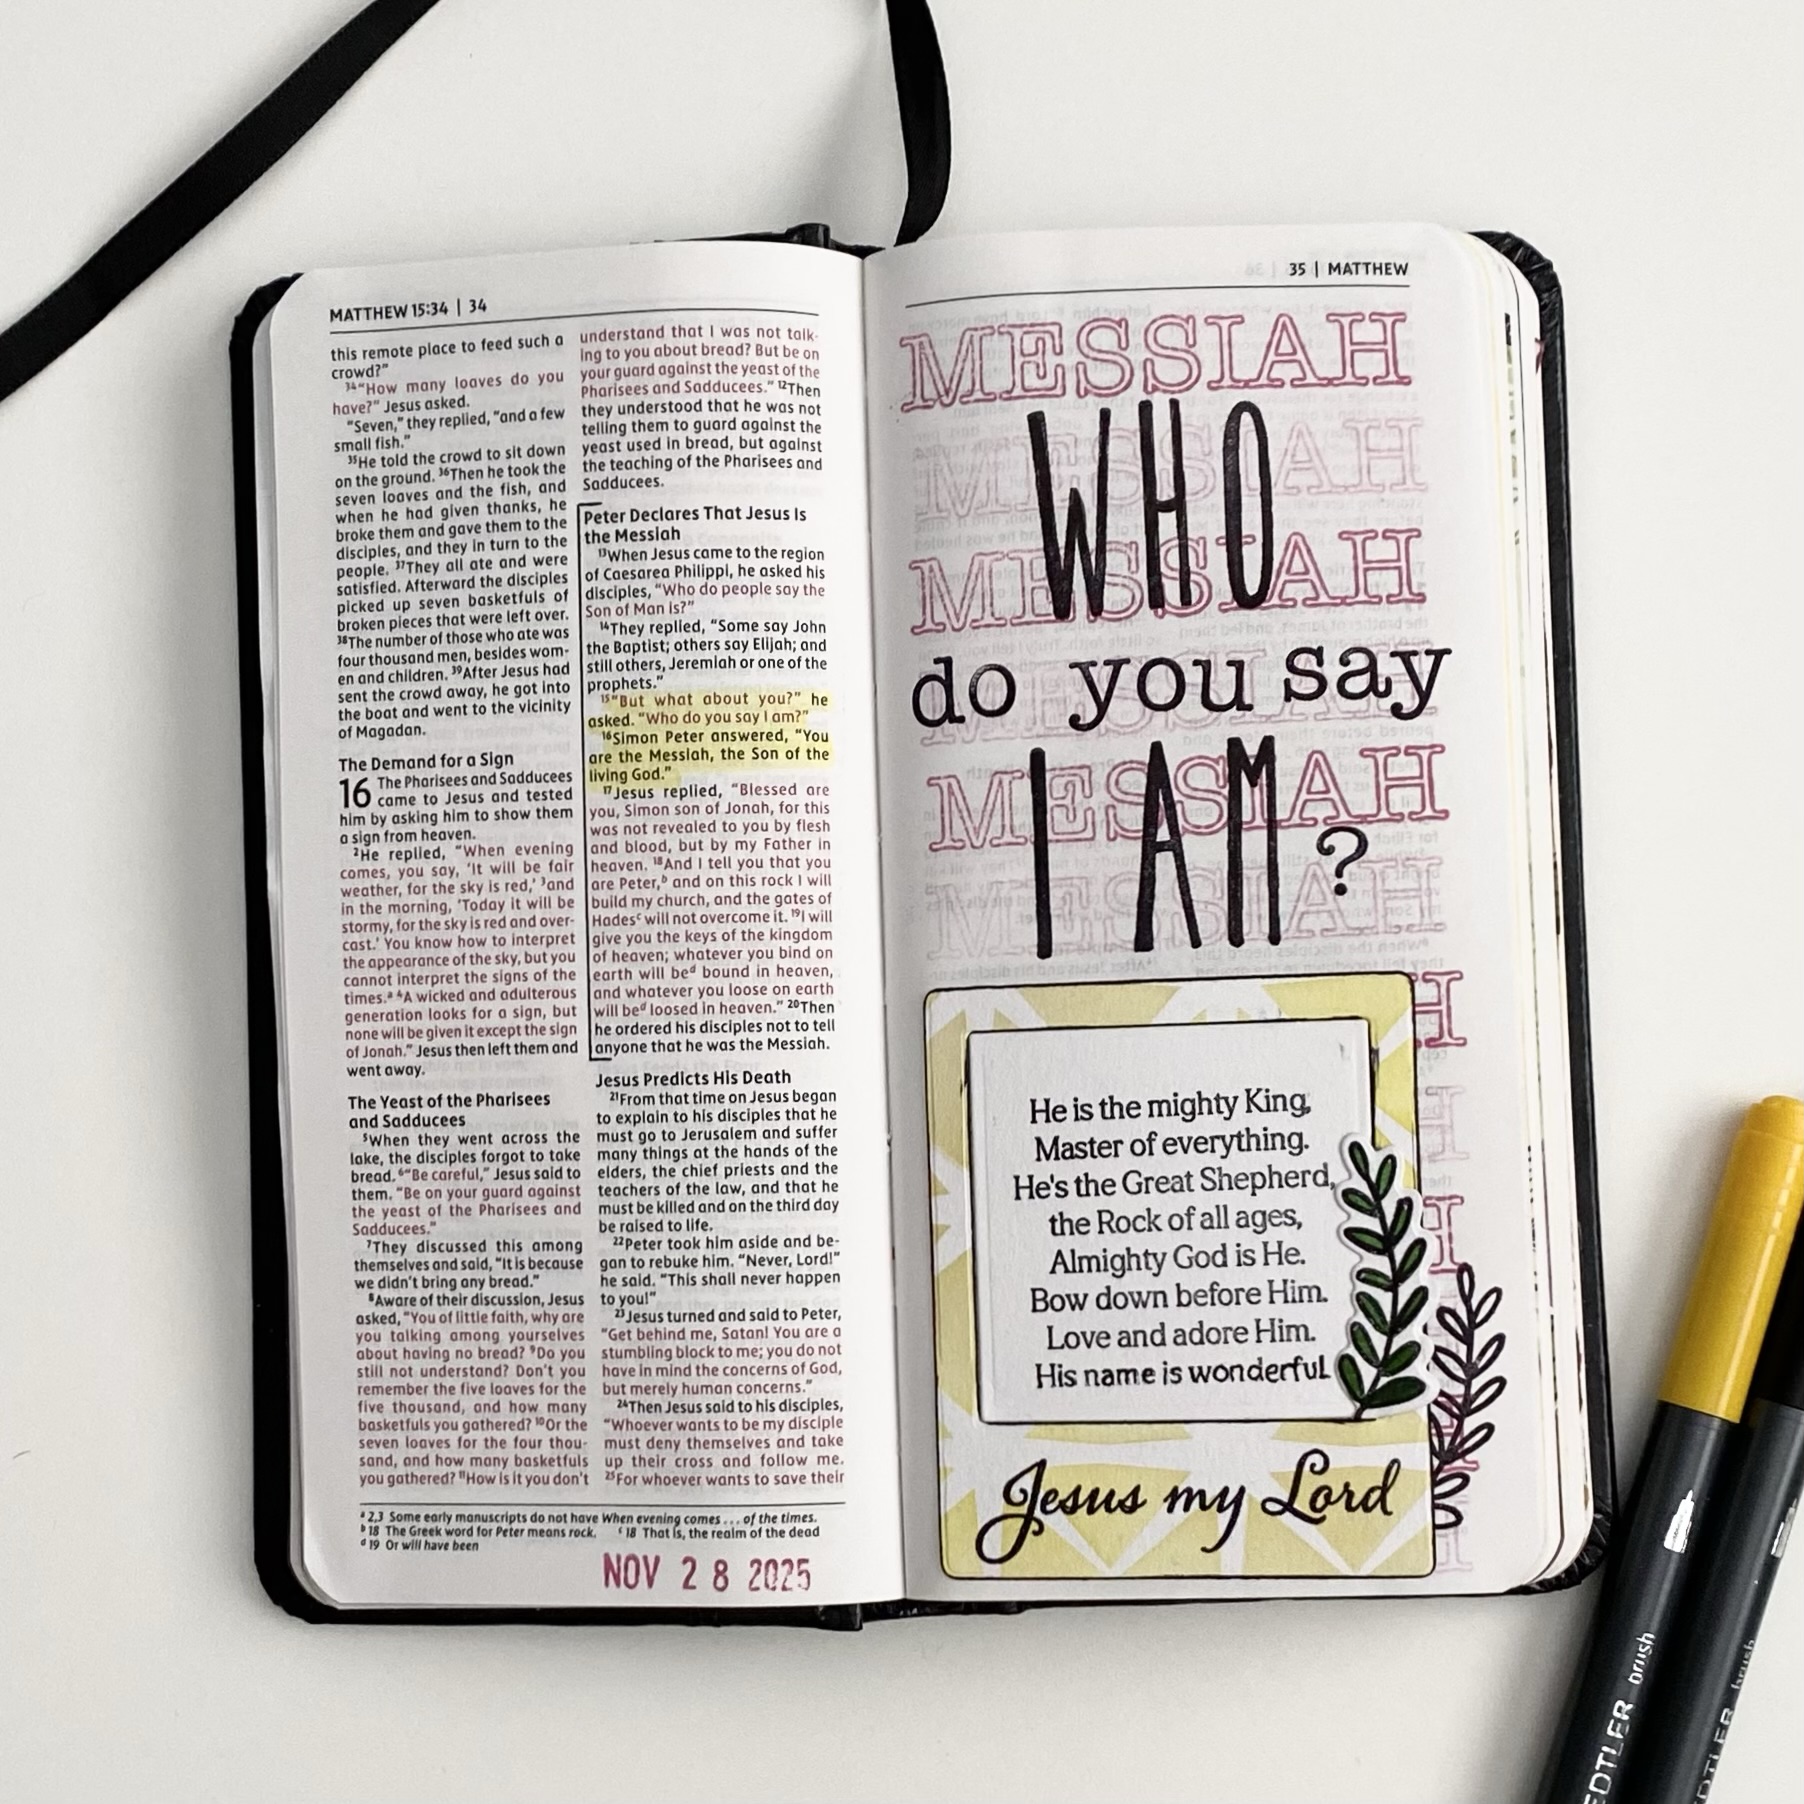 MATTHEW 15:34 | 34
this remote place to feed such a
crowd?"
34"How many loaves do you
have?" Jesus asked.
"Seven," they replied, "and a few
small fish."
35He told the crowd to sit down
on the ground. 36Then he took the
seven loaves and the fish, and
when he had given thanks, he
broke them and gave them to the
disciples, and they in turn to the
people. 37They all ate and were
satisfied. Afterward the disciples
picked up seven basketfuls of
broken pieces that were left over.
38The number of those who ate was
four thousand men, besides wom-
en and children. 39After Jesus had
sent the crowd away, he got into
the boat and went to the vicinity
of Magadan.
The Demand for a Sign
16 The Pharisees and Sadducees
came to Jesus and tested
him by asking him to show them
a sign from heaven.
2He replied, "When evening
comes, you say, 'It will be fair
weather, for the sky is red,' 3and
in the morning, 'Today it will be
stormy, for the sky is red and over-
cast.' You know how to interpret
the appearance of the sky, but you
cannot interpret the signs of the
times.a 4A wicked and adulterous
generation looks for a sign, but
none will be given it except the sign
of Jonah." Jesus then left them and
went away.
The Yeast of the Pharisees
and Sadducees
5When they went across the
lake, the disciples forgot to take
bread. 6"Be careful," Jesus said to
them. "Be on your guard against
the yeast of the Pharisees and
Sadducees."
7They discussed this among
themselves and said, "It is because
we didn't bring any bread."
8Aware of their discussion, Jesus
asked, "You of little faith, why are
you talking among yourselves
about having no bread? 9Do you
still not understand? Don't you
remember the five loaves for the
five thousand, and how many
basketfuls you gathered? 10Or the
seven loaves for the four thou-
sand, and how many basketfuls
you gathered? 11How is it you don't
understand that I was not talk-
ing to you about bread? But be on
your guard against the yeast of the
Pharisees and Sadducees." 12Then
they understood that he was not
telling them to guard against the
yeast used in bread, but against
the teaching of the Pharisees and
Sadducees.
Peter Declares That Jesus Is
the Messiah
13When Jesus came to the region
of Caesarea Philippi, he asked his
disciples, "Who do people say the
Son of Man is?"
14They replied, "Some say John
the Baptist; others say Elijah; and
still others, Jeremiah or one of the
prophets."
15"But what about you?" he
asked. "Who do you say I am?"
16Simon Peter answered, "You
are the Messiah, the Son of the
living God."
17Jesus replied, "Blessed are
you, Simon son of Jonah, for this
was not revealed to you by flesh
and blood, but by my Father in
heaven. 18And I tell you that you
are Peter,b and on this rock I will
build my church, and the gates of
Hadesc will not overcome it. 19I will
give you the keys of the kingdom
of heaven; whatever you bind on
earth will bed bound in heaven,
and whatever you loose on earth
will bed loosed in heaven." 20Then
he ordered his disciples not to tell
anyone that he was the Messiah.
Jesus Predicts His Death
21From that time on Jesus began
to explain to his disciples that he
must go to Jerusalem and suffer
many things at the hands of the
elders, the chief priests and the
teachers of the law, and that he
must be killed and on the third day
be raised to life.
22Peter took him aside and be-
gan to rebuke him. "Never, Lord!"
he said. "This shall never happen
to you!"
23Jesus turned and said to Peter,
"Get behind me, Satan! You are a
stumbling block to me; you do not
have in mind the concerns of God,
but merely human concerns."
24Then Jesus said to his disciples,
"Whoever wants to be my disciple
must deny themselves and take
up their cross and follow me.
25For whoever wants to save their
a 2,3 Some early manuscripts do not have When evening comes . . . of the times.
b 18 The Greek word for Peter means rock. c 18 That is, the realm of the dead
d 19 Or will have been
NOV 28 2025
35 | MATTHEW
MESSIAH
MESSIAH
WHO
MESSIAH
do you say
MESSIAH
MESSIAH
I AM?
MESSIAH
H
H
He is the mighty King,
Master of everything.
He's the Great Shepherd,
the Rock of all ages,
Almighty God is He.
Bow down before Him.
Love and adore Him.
His name is wonderful
Jesus my Lord
EDTLER brush
DTLER brush